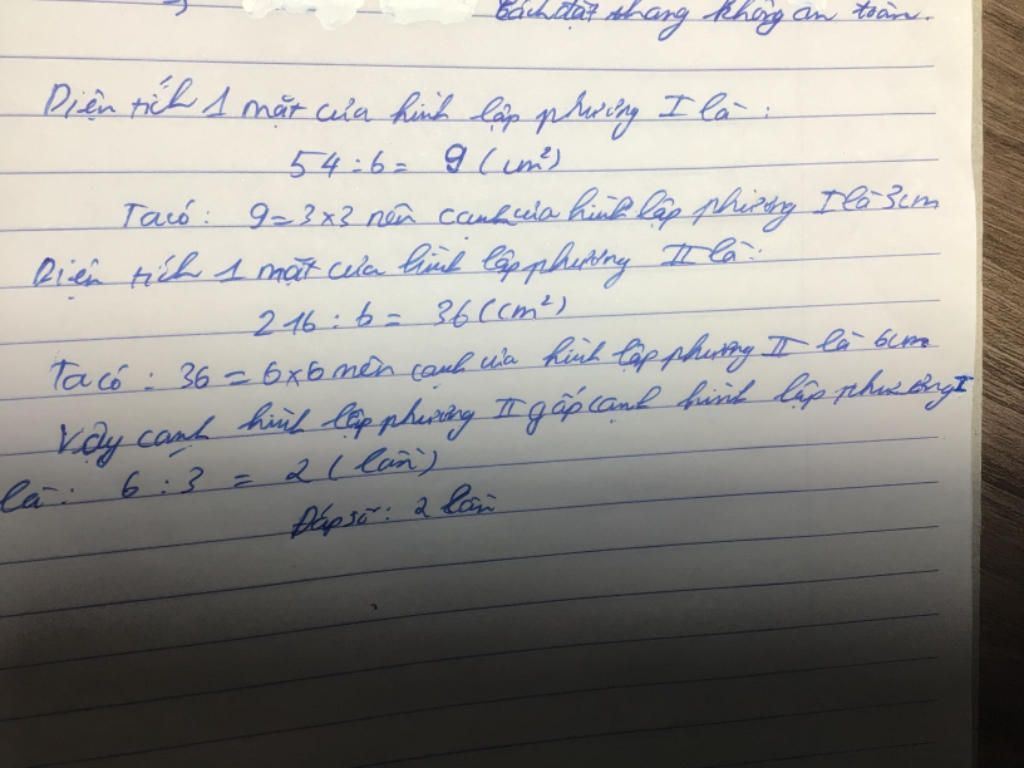 Cách đặt thang không an toàn.
Diện tích 1 mặt của hình lập phương I là:
54 : 6 = 9 (cm²)
Ta có: 9 = 3 x 3 nên cạnh của hình lập phương I là 3cm
Diện tích 1 mặt của hình lập phương II là:
216 : 6 = 36 (cm²)
Ta có : 36 = 6 x 6 nên cạnh của hình lập phương II là 6cm
Vậy cạnh hình lập phương II gấp cạnh hình lập phương I
là: 6 : 3 = 2 (lần)
Đáp số: 2 lần